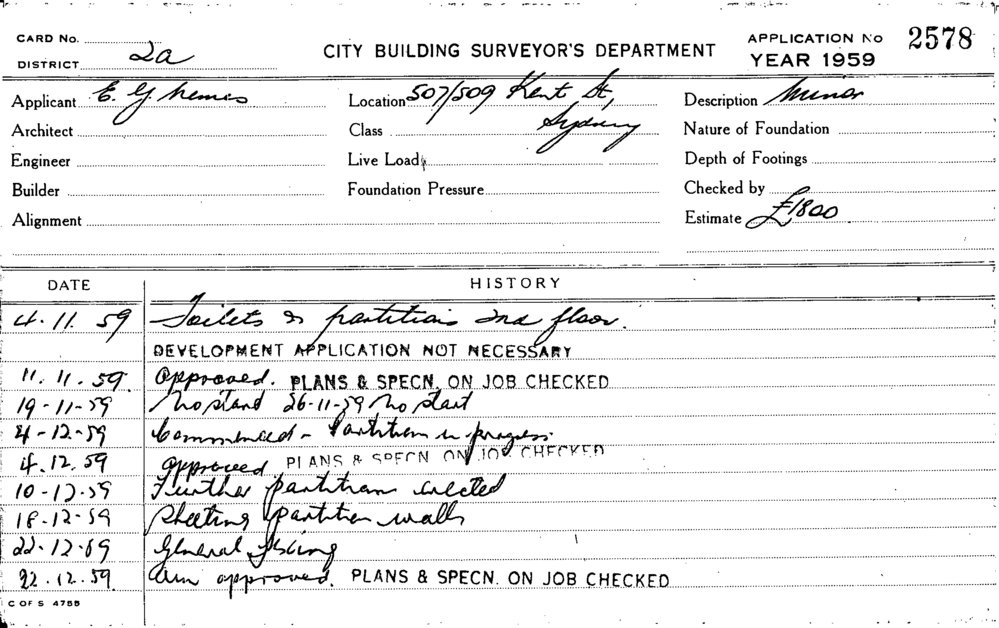 CARD No.
DISTRICT 2a
CITY BUILDING SURVEYOR'S DEPARTMENT
APPLICATION No 2578
YEAR 1959
Applicant E. G. Nemes
Location 507/509 Kent St,
Sydney
Description Minor
Architect
Class
Nature of Foundation
Engineer
Live Load
Depth of Footings
Builder
Foundation Pressure
Checked by
Alignment
Estimate £1800
DATE HISTORY
4.11.59 Toilets & partitions 2nd floor.
DEVELOPMENT APPLICATION NOT NECESSARY
11.11.59. Approved. PLANS & SPECN. ON JOB CHECKED
19-11-59 No start 26-11-59 No start
4-12-59 Commenced - Partition in progress.
4.12.59 approved PLANS & SPECN ON JOB CHECKED
10-12-59 Further partitions erected
18-12-59 Sheeting partition walls
22-12-59 General fixing
22.12.59. approved. PLANS & SPECN. ON JOB CHECKED
C OF S 4755